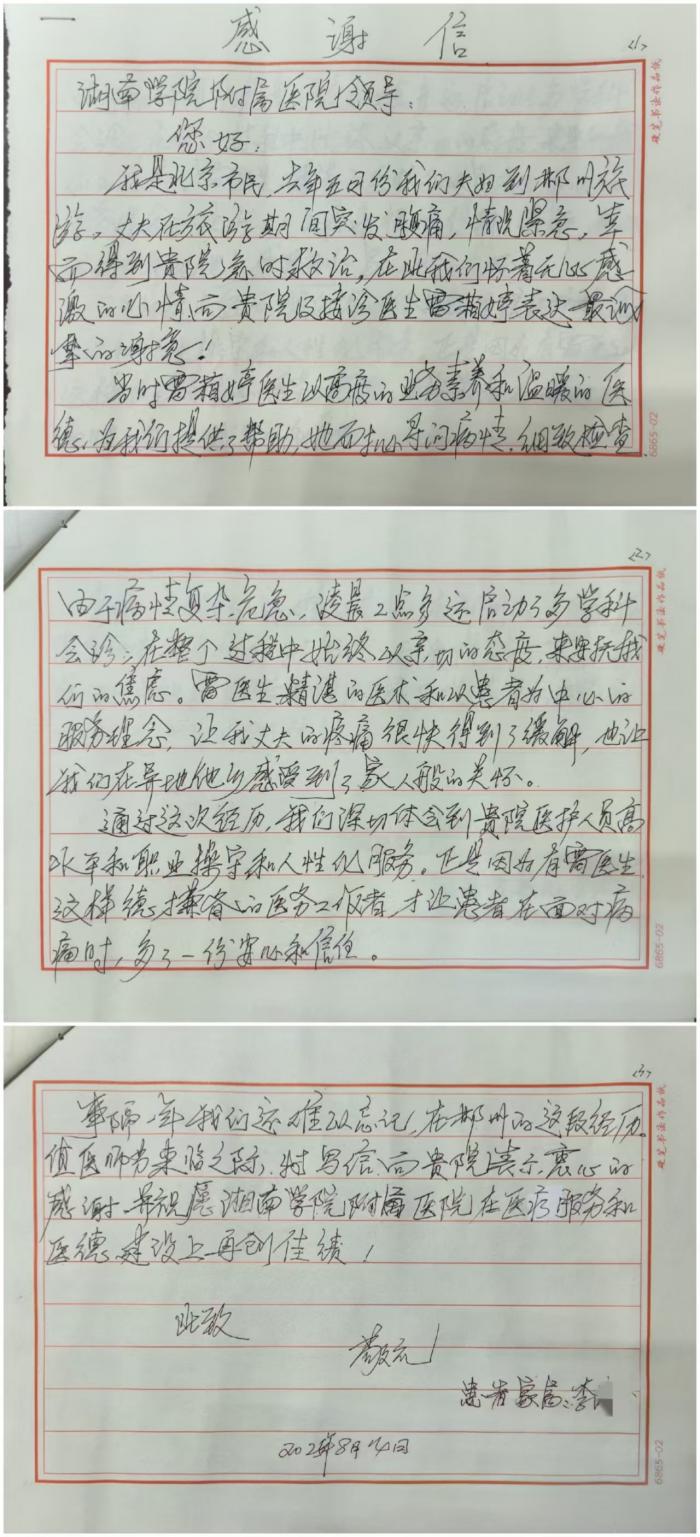 感谢信
<1>
湘南学院附属医院领导:
您好:
我是北京市民,去年五月份我们夫妇到郴州旅
游。丈夫在旅游期间突发腹痛,情况紧急,幸
而得到贵院及时救治,在此我们怀着无比感
激的心情,向贵院及接诊医生雷箱婷表达最诚
挚的谢意!
当时雷箱婷医生以高度的业务素养和温暖的医
德,为我们提供了帮助,她耐心寻问病情,细致检查
硬笔书法作品纸
6865-02
<2>
由于病情复杂、危急,凌晨2点多还启动了多学科
会诊;在整个过程中始终以亲切的态度,来安抚我
们的焦虑。雷医生精湛的医术和以患者为中心的
服务理念,让我丈夫的疼痛很快得到了缓解,也让
我们在异地他乡感受到了家人般的关怀。
通过这次经历,我们深切体会到贵院医护人员高
水平和职业操守和人性化服务。正是因为有雷医生
这样德才兼备的医务工作者,才让患者在面对病
痛时,多了一份安心和信任。
硬笔书法作品纸
6865-02
<3>
事隔一年我们还难以忘记,在郴州的这段经历。
值医师节来临之际,特写信向贵院表示衷心的
感谢。并祝愿湘南学院附属医院在医疗服务和
医德建设上再创佳绩!
此致
敬礼
患者家属:李
8月14日
硬笔书法作品纸
6865-02